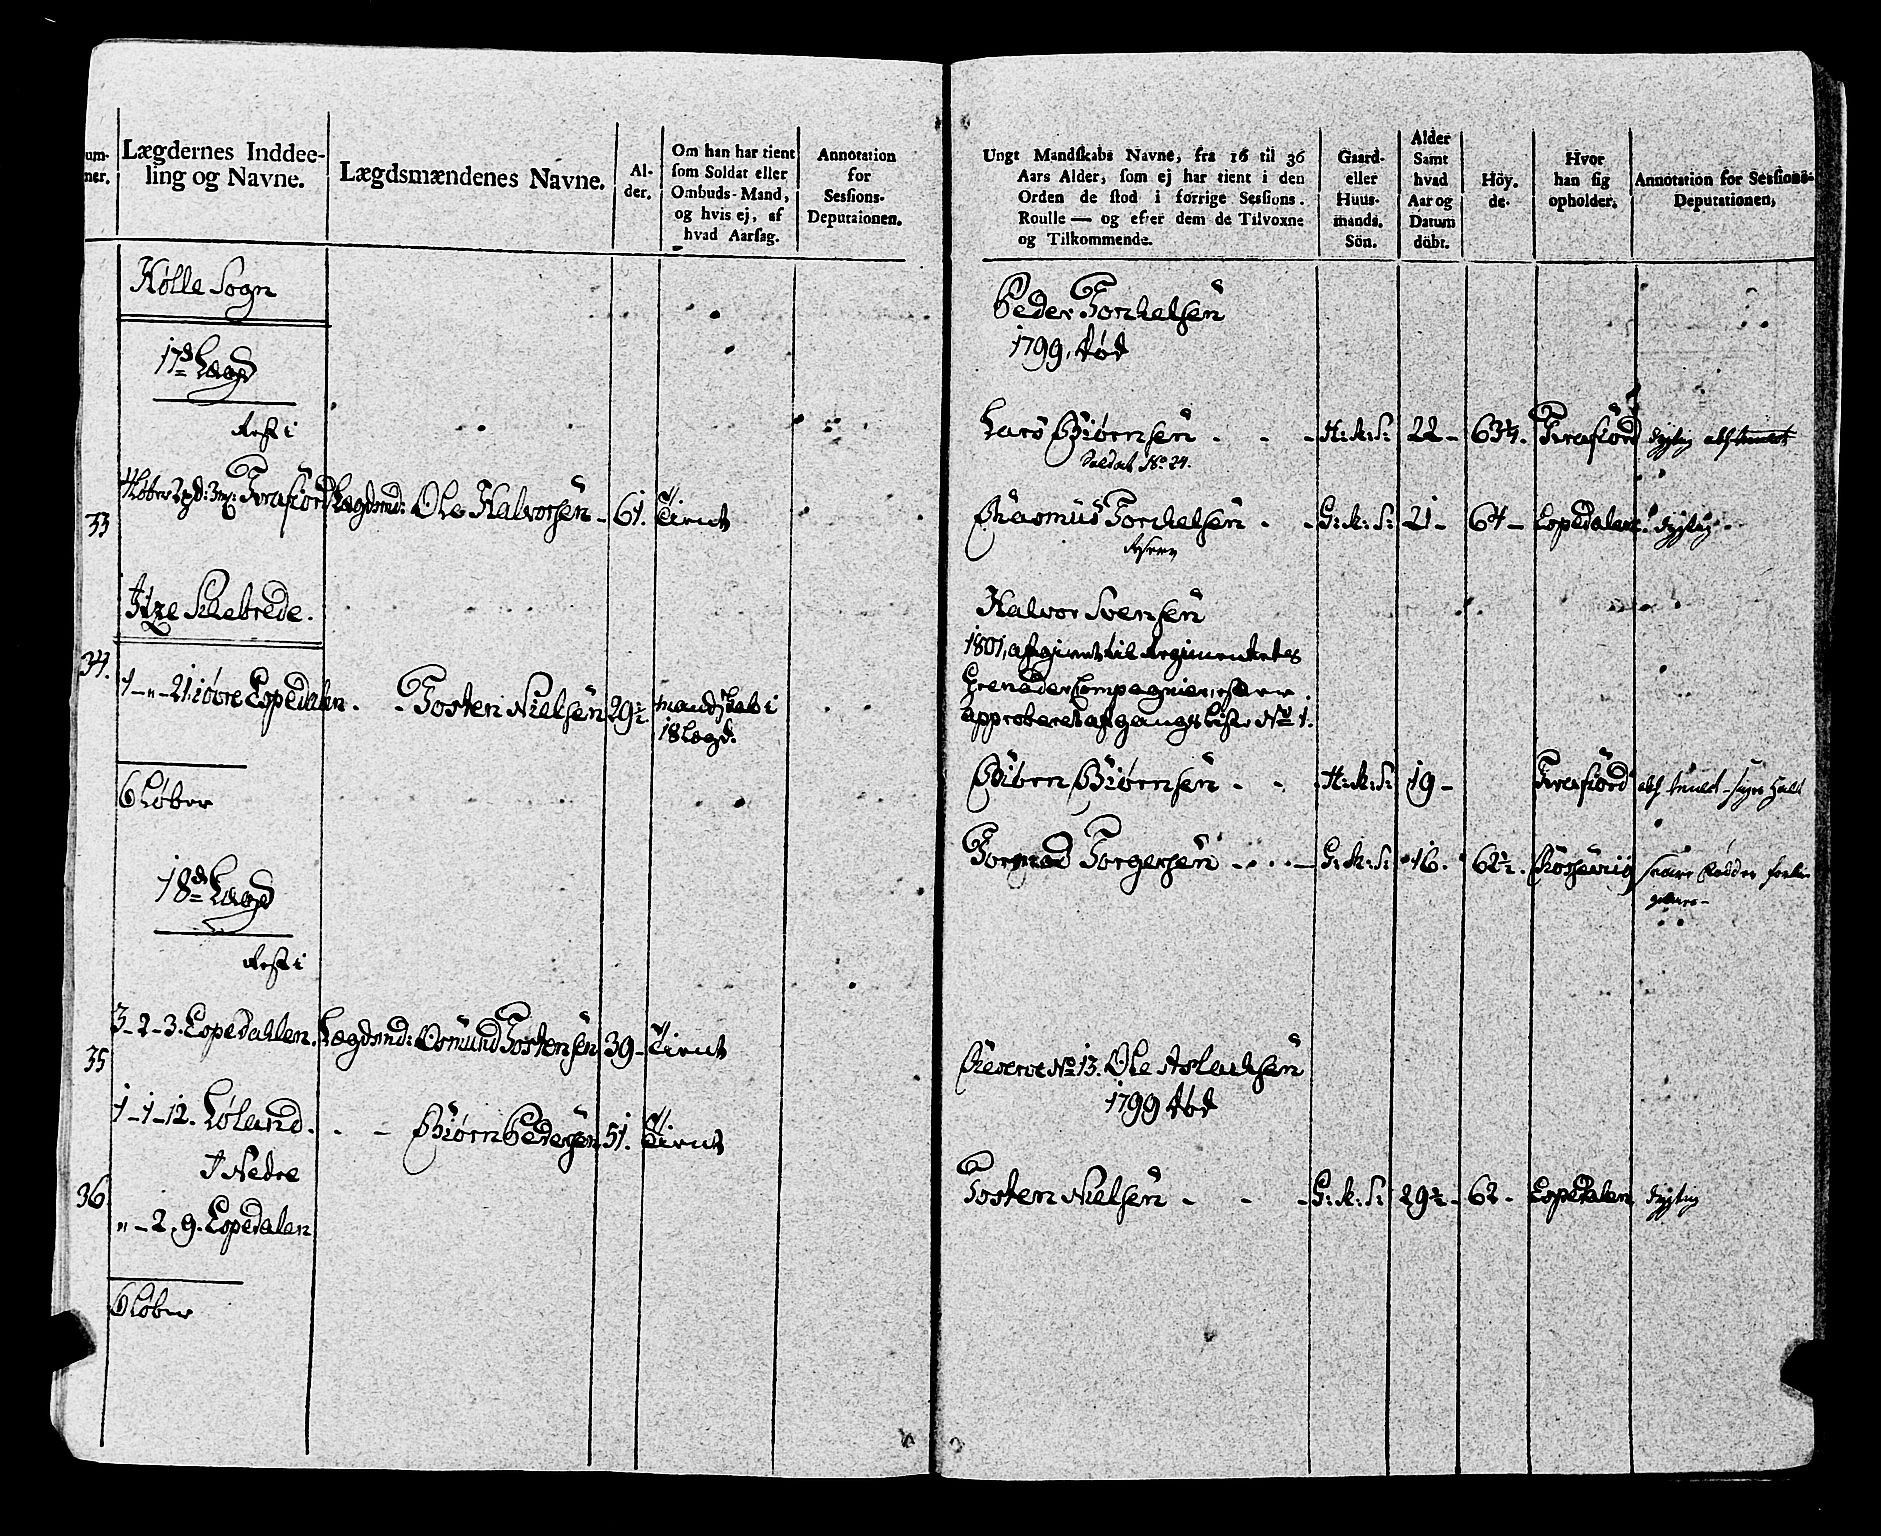 um-
mer.
Lægdernes Inddee-
ling og Navne.
Lægdsmændenes Navne.
Al-
der.
Om han har tient
som Soldat eller
Ombuds-Mand,
og hvis ej, af
hvad Aarsag.
Annotation
for
Sessions-
Deputaionen.
Hølle Sogn
17d Lægd
Rest i
4 Løber 2 pd: 3 m/: Frafiord Lægdsmd: Ole Halvorsen - 61. Tient
33
Itze Schebrede.
34.
1 - " - 21 i øvre Espedalen . - Tosten Nielsen 29½ mandskab i
18 Lægd.
6 Løber
18d Lægd
Rest i
3 - 2 - 3. Espedallen. Lægdsmd: Osmund Tostensen 39 - Tient
35
1 - 1 - 12. Løland. . - Biørn Pedersen 51. Tient
I Nedre
36
" - 2. 9. Espedalen
6 Løber
Ungt Mandskabs Navne, fra 16 til 36
Aars Alder, som ej har tient i den
Orden de stod i forrige Sessions.
Roulle — og efter dem de Tilvoxne
og Tilkommende.
Gaard-
eller
Huus-
mands.
Sön.
Alder
Samt
hvad
Aar og
Datum
döbt.
Höy.
de.
Hvor
han sig
opholder.
Annotation for Sessions-
Deputationen,
Peder Torkelsen
1799, død
Lars Biørnsen . - - H: M: S: 22 - 63¼. Frafiord dygtig
Soldat No 24.
Rasmus Torkelsen . - G: M: S: 21 - 64 - Espedalen. dygtig -
Reserv
Halvor Svensen
1801, afgivet til Regimentetes
Grenader Compagnie,
approberet afgangs Liste No 1.
Biørn Biørnsen . . H: M: S: 19 - Frafiord
Torgersen . . . - G: M: S: 16. 62½.
Reserve No 13. Ole Aslachsen
1799 død
Tosten Nielsen - - - G: M: S: 29½ - 62 - Espedalen dygtig